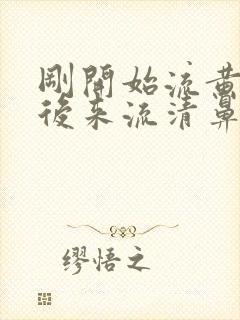 剛開始流黃
後来流清鼻
缪悟之